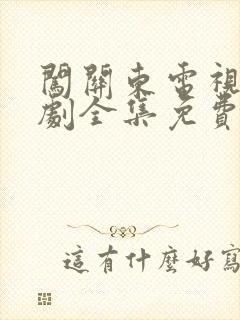 闖關東電視
劇全集免費
這有什麼好寫